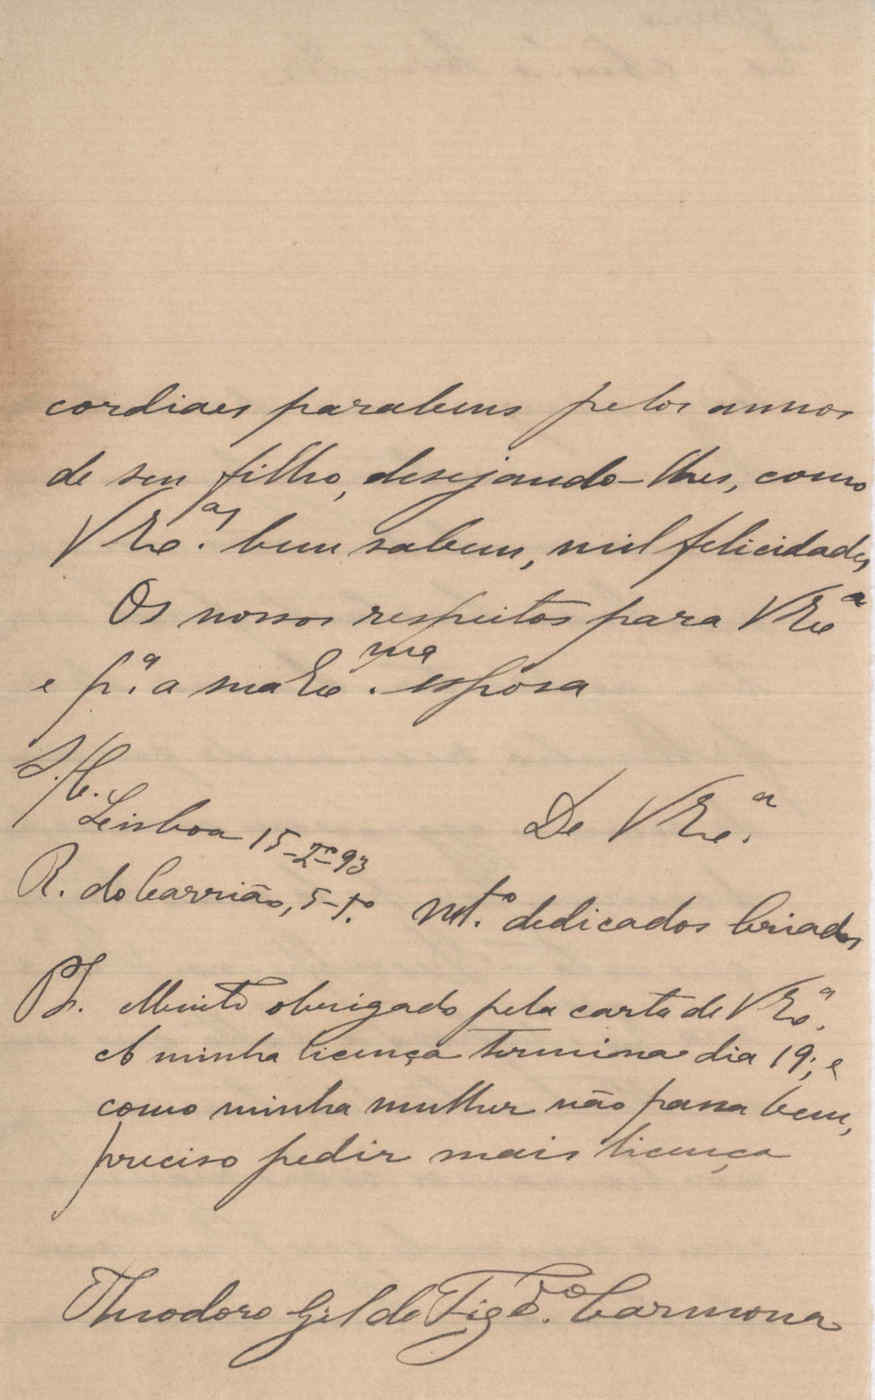 cordiaes parabens pelos annos
de seu filho, desejando-lhes, como
V Ex.as bem sabem, mil felicidades
Os nossos respeitos para V Exa
e p.a a sua Ex.ma esposa
S. C.
Lisboa 15-2º-93
De V Ex.a
R. do Carrião, 5-1.º
Mt.º dedicados Criados
PS. Muito obrigado pela carta de V Ex.a
A minha licença termina dia 19; e
como minha mulher não passa bem,
preciso pedir mais licença
Theodoro Gil de Fig.do Carmona